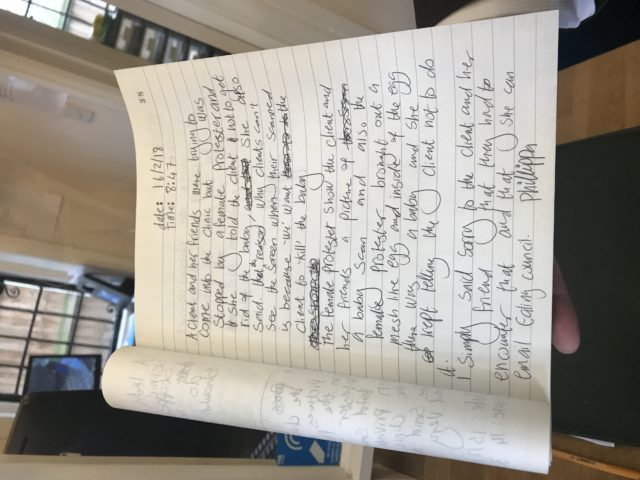 38
date: 16/2/18
Time: 8:47.
A client and her friends were trying to
come into the clinic but was
stopped by a female Protester and
she told the client not to get
rid of the baby, She also
said the reason why clients can't
see the screen when their scanned
is because 'we' want the
client to 'kill' the baby.
The female protester show the client and
her friends a picture of
a baby scan and also the
female protester brought out a
mesh like egg and inside of the egg
there was a baby and she
kept telling the client not to do
it.
I simply said sorry to the client and her
friend that they had to
encounter that and that she can
email Ealing council. Phillippa